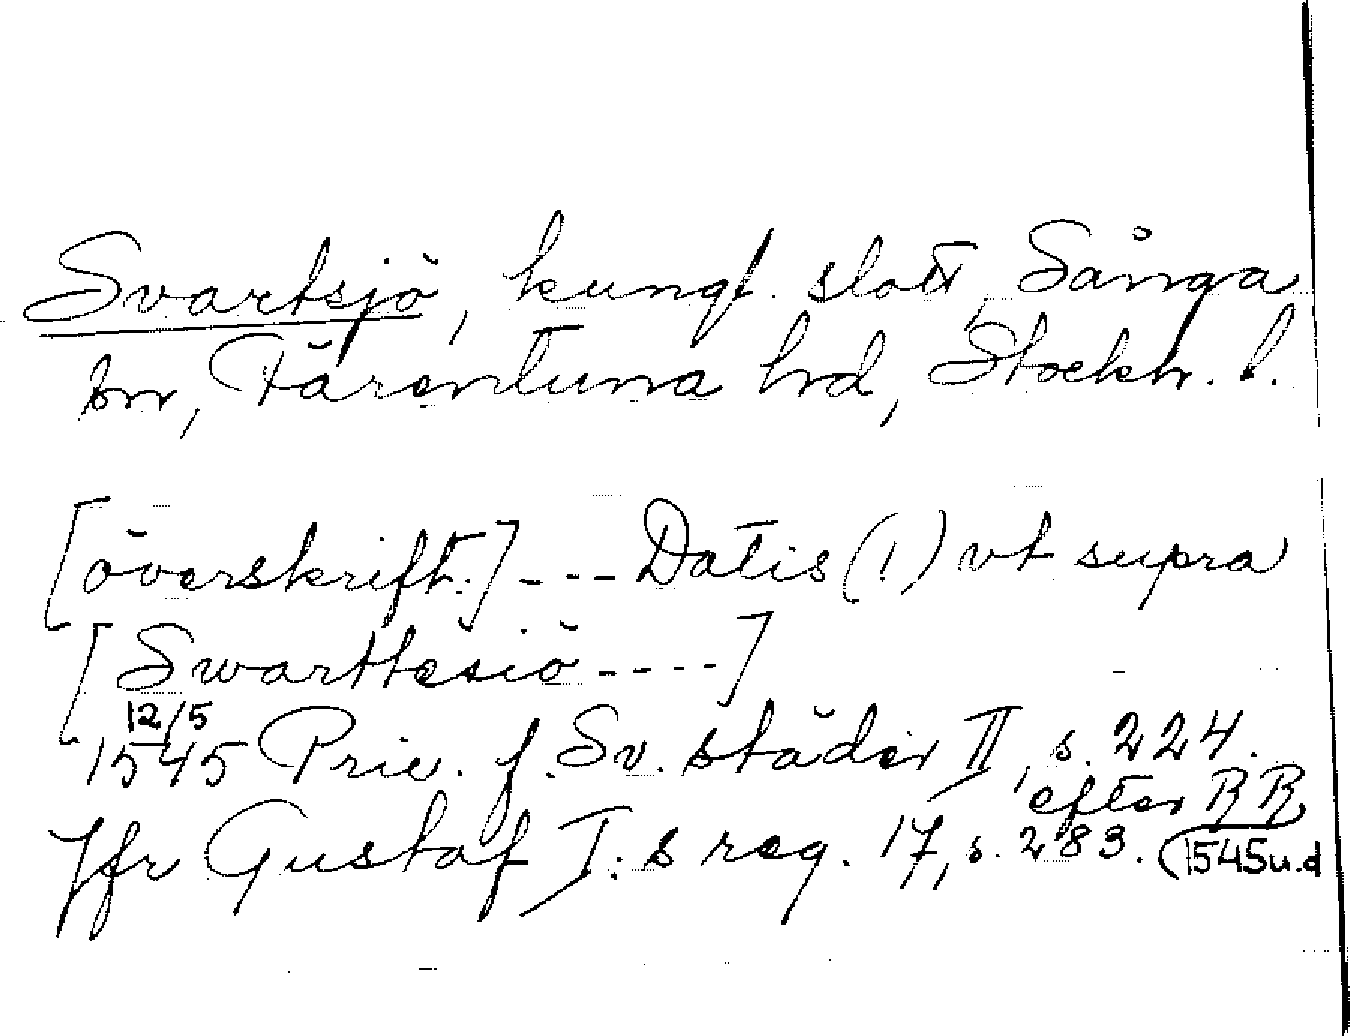 Svartsjö, kungl. slott, Sånga
sn, Färentuna hrd, Stockh. l.
[överskrift:] --- Datis (!) vt supra
[Swarttesiö ----]
12/5
1545 Priv. f. Sv. städer II, s. 224.
efter RR
Jfr Gustaf I:s reg. 17, s. 283. (1545 u.d